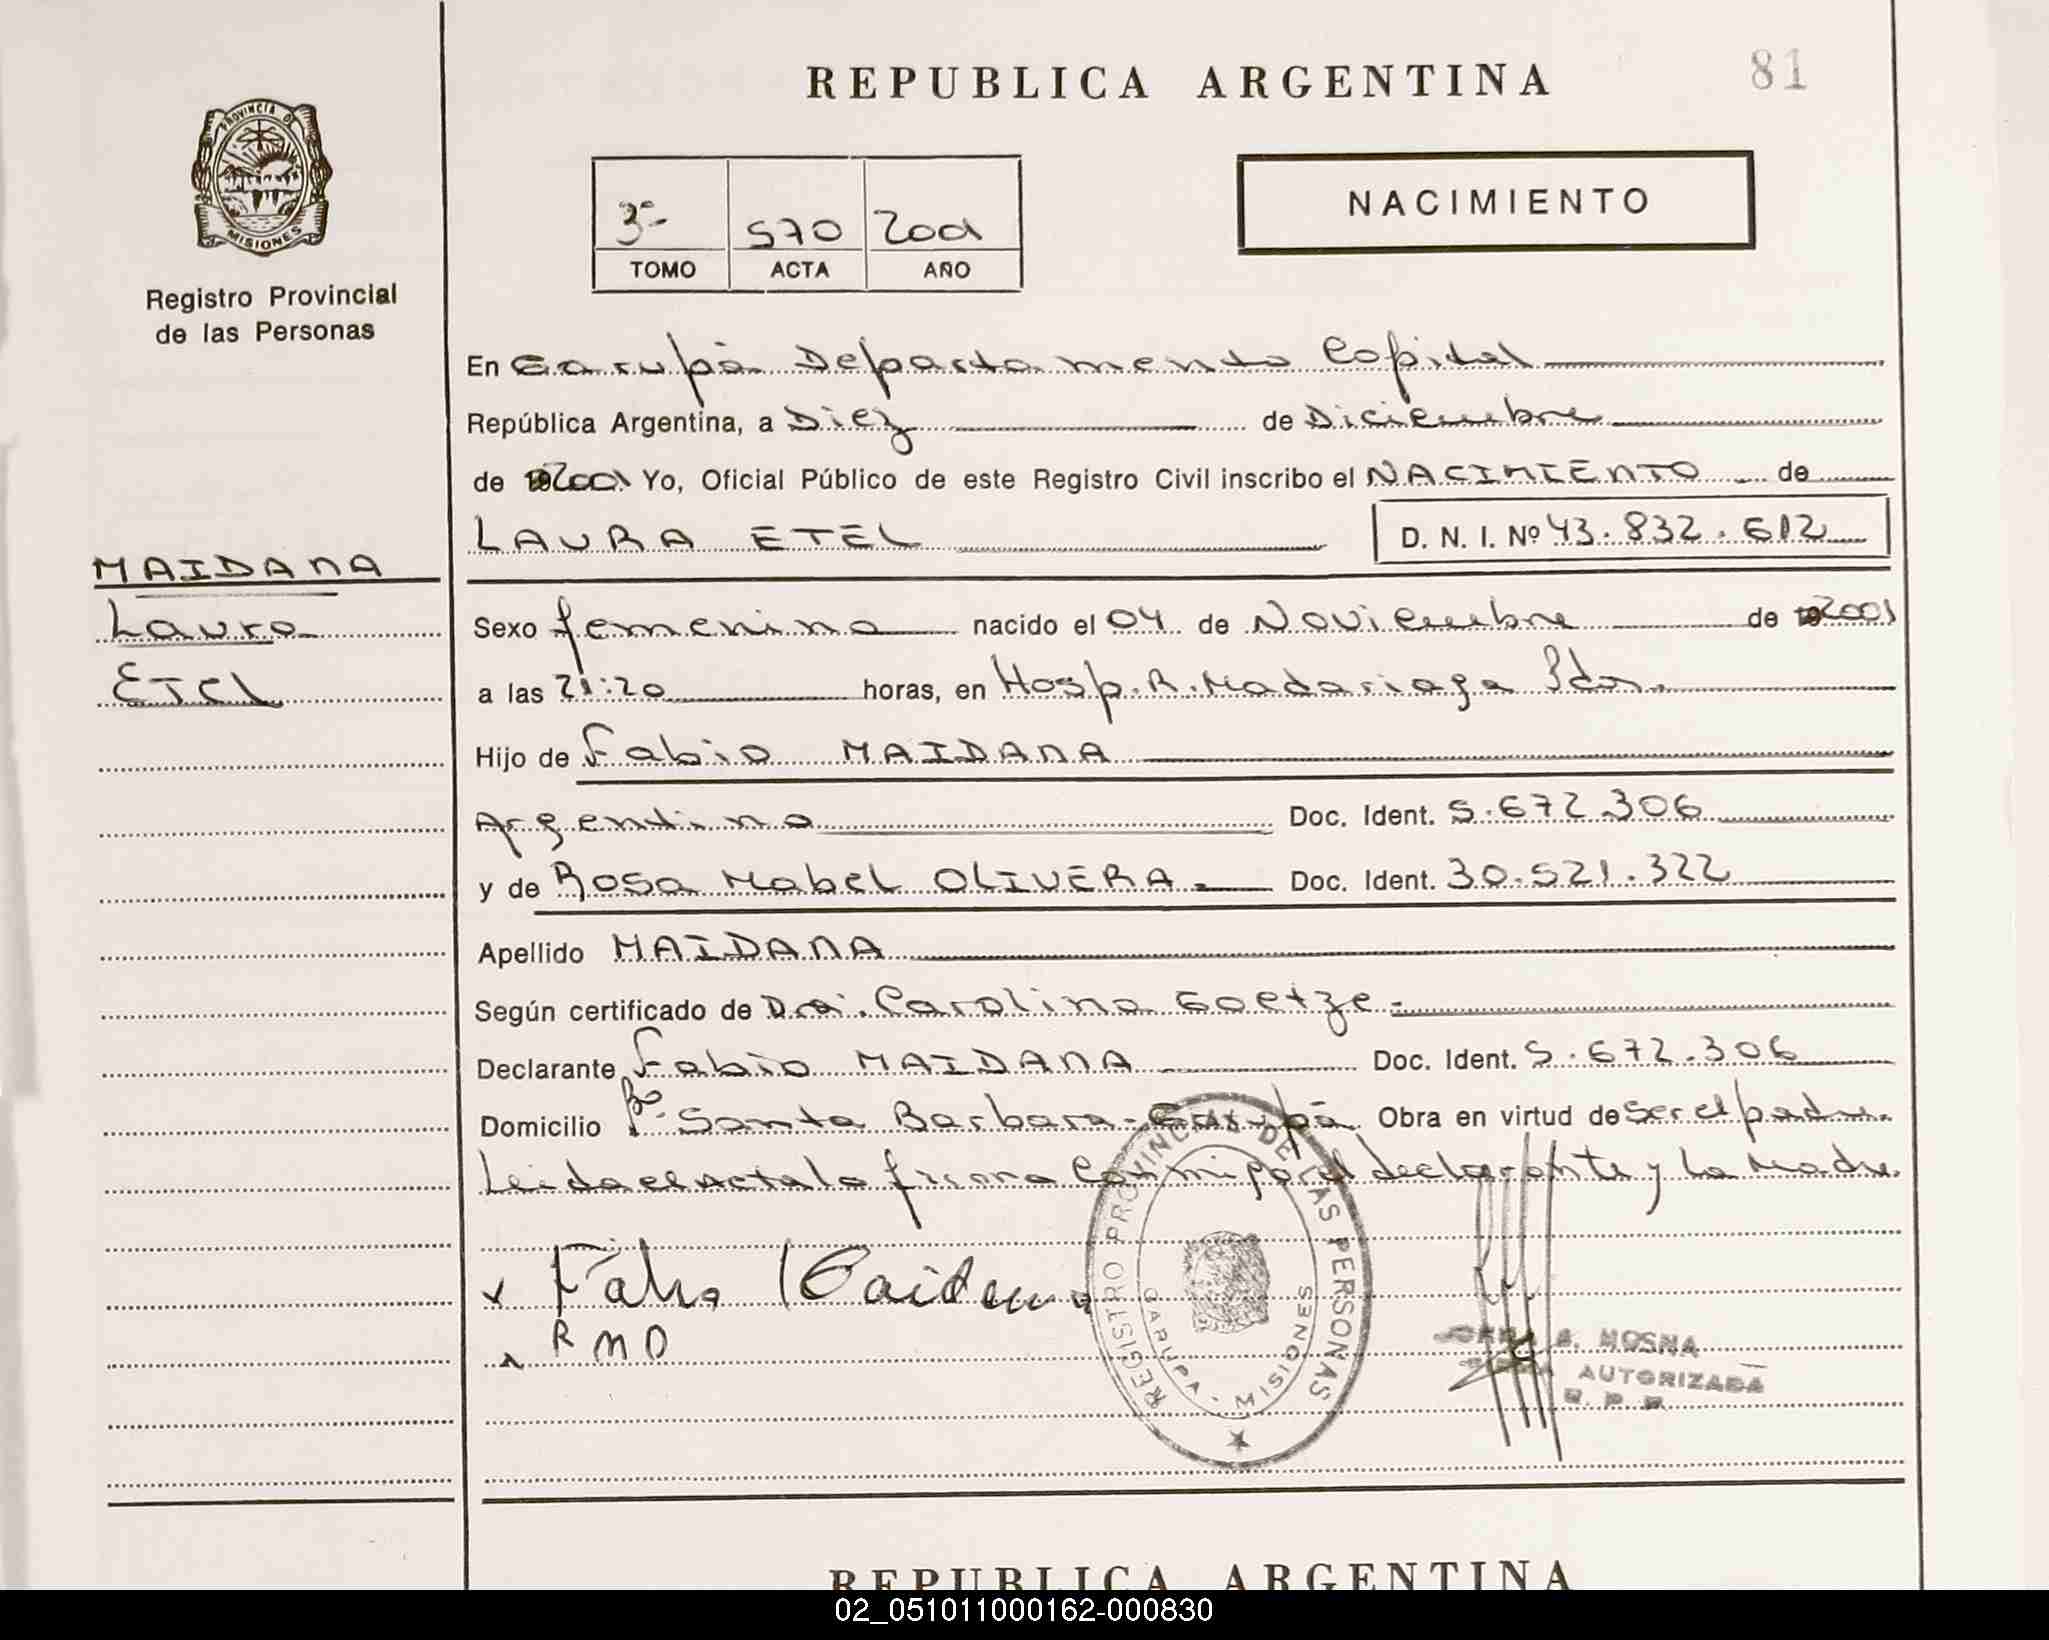 REPUBLICA ARGENTINA
81
PROVINCIA DE
MISIONES
Registro Provincial
de las Personas
NACIMIENTO
3º 570 2001
TOMO ACTA AÑO
En Garupá Departamento Capital
República Argentina, a Diez de Diciembre
de 2001 Yo, Oficial Público de este Registro Civil inscribo el NACIMIENTO de
LAURA ETEL D. N. I. Nº 43.832.612
MAIDANA
Laura
ETEL
Sexo femenino nacido el 04 de Noviembre de 2001
a las 21:20 horas, en Hosp. R. Madariaga Pdas.
Hijo de Fabio MAIDANA
Argentino Doc. Ident. 5.672.306
y de Rosa Mabel OLIVERA Doc. Ident. 30.521.322
Apellido MAIDANA
Según certificado de Dra. Carolina Goetze
Declarante Fabio MAIDANA Doc. Ident. 5.672.306
Domicilio Bº Santa Barbara - Garupá Obra en virtud de ser el padre.
Leida el acta la firma conmigo el declarante y la Madre.
Fabio Maidana
R M O
REGISTRO PROVINCIAL DE LAS PERSONAS
GARUPA - MISIONES
A. MOSNA
FIRMA AUTORIZADA
R. P. P.
REPUBLICA ARGENTINA
02_051011000162-000830